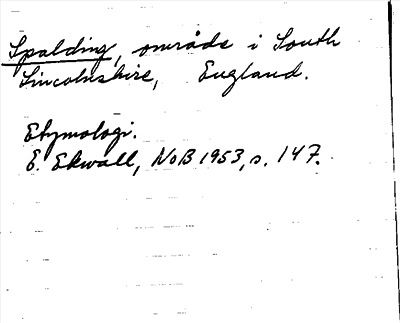 Spalding, område i South
Lincolnshire, England.
Etymologi.
E. Ekwall, NoB 1953, s. 147.